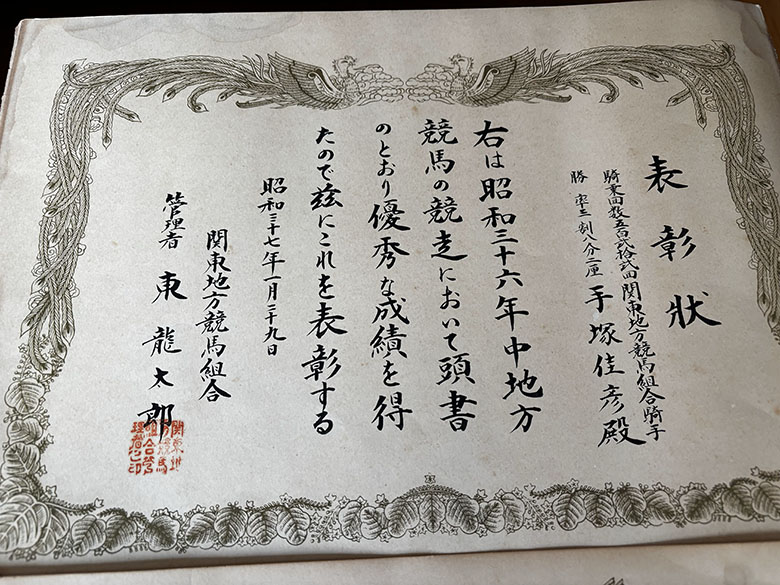 表彰状
騎乗回数五百弐拾弐回関東地方競馬組合騎手
勝率三割八分二厘
手塚佳彦殿
右は昭和三十六年中地方
競馬の競走において頭書
のとおり優秀な成績を得
たので茲にこれを表彰する
昭和三十七年一月二十九日
関東地方競馬組合
管理者 東龍太郎
関東地
方競馬
組合管
理者之印